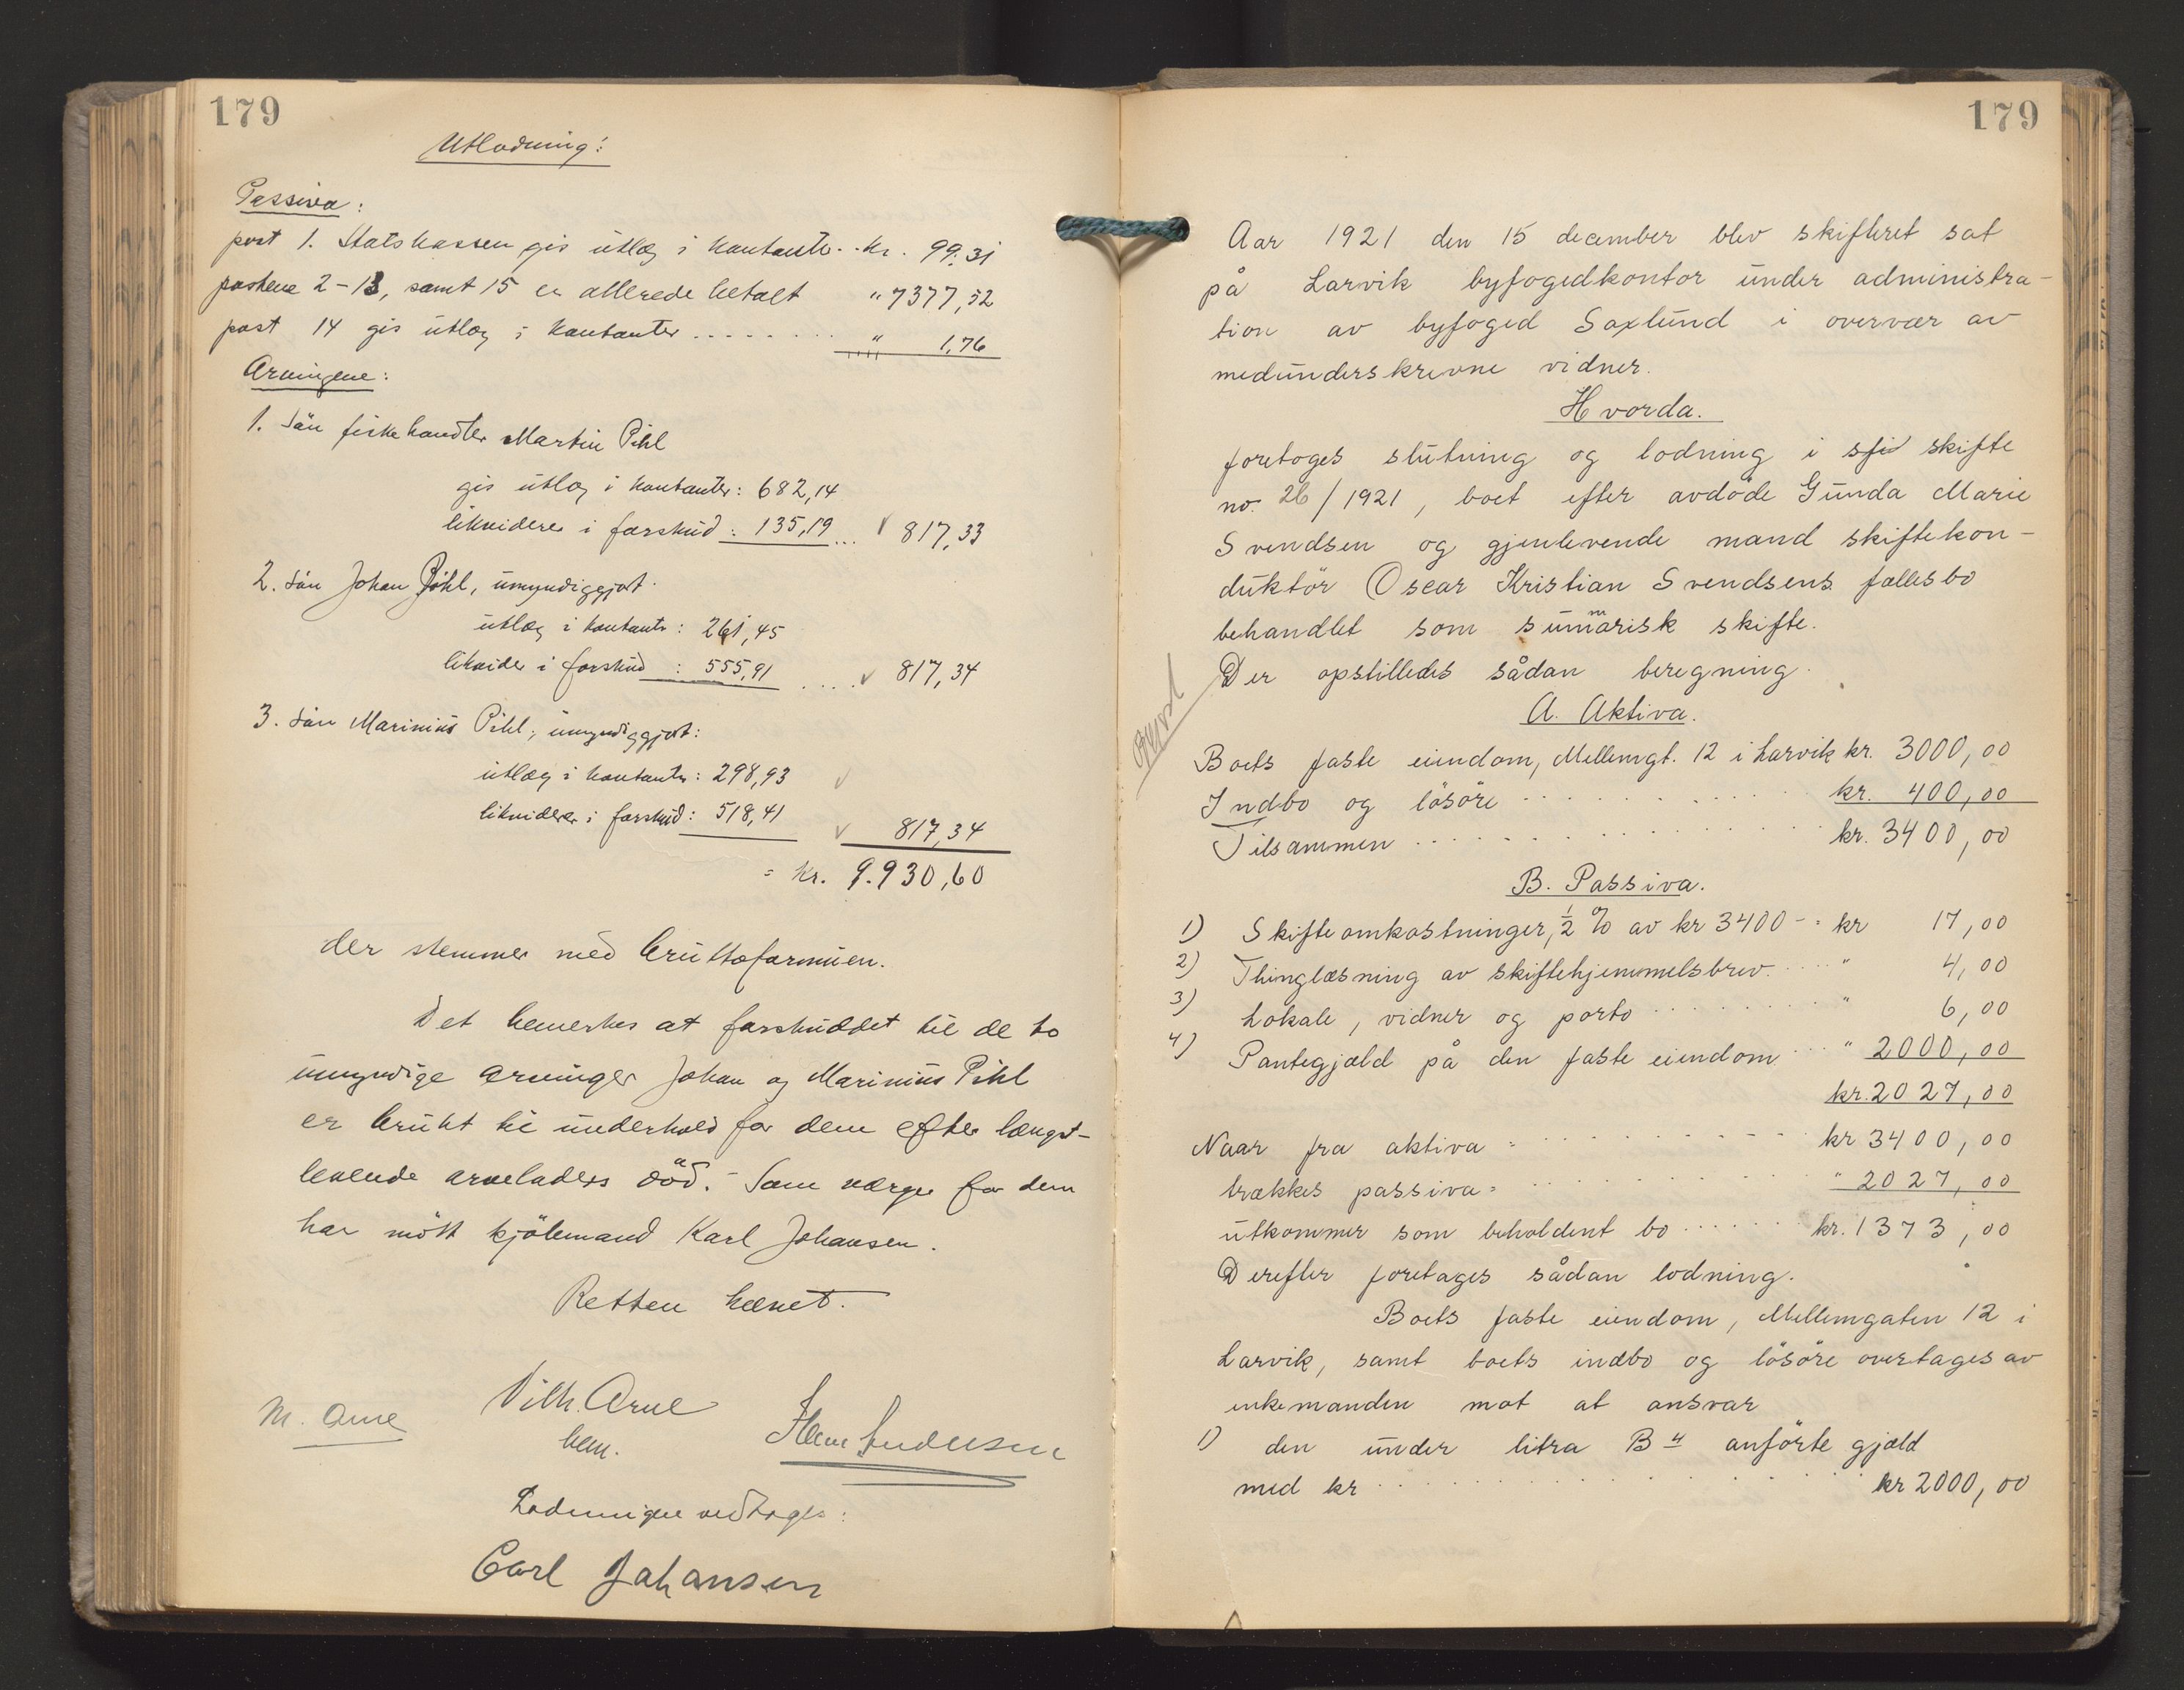 179
Utlodning:
Passiva:
post 1. Statskassen gis utlæg i kontanter .. kr. 99,31
postene 2-13, samt 15 er allerede betalt " 7377,52
post 14 gis utlæg i kontanter ........ " 1,76
Arvingene:
1. Sön fiskehandler Martin Pihl
gis utlæg i kontanter: 682,14
likvideres i forskud: 135,19 ... 817,33
2. Sön Johan Pihl, umyndiggjort.
utlæg i kontanter: 261,45
likvider i forskud: 555,91 .... 817,34
3. Sön Marinius Pihl, umyndiggjort:
utlæg i kontanter: 298,93
likvideres i forskud: 518,41 817,34
= kr. 9.930,60
der stemmer med bruttoformuen.
Det bemerkes at forskuddet til de to
umyndige arvinger Johan og Marinius Pihl
er brukt til underhold for dem efter længst-
levende arveladers död. Som verge for dem
har mött kjöbmand Karl Johansen.
Retten hævet.
Vilh. Arne
M. Arne
Lodningen vedtages:
Carl Johansen
179
Aar 1921 den 15 december blev skifteret sat
på Larvik byfogedkontor under administra-
tion av byfoged Saxlund i overvær av
medunderskrevne vidner.
Hvorda.
foretoges slutning og lodning i skifte
no. 26/1921, boet efter avdöde Gunda Marie
Svendsen og gjenlevende mand skiftekon-
duktör Oscar Kristian Svendsens fællesbo
behandlet som summarisk skifte.
Der opstilledes sådan beregning.
A. Aktiva.
Boets faste eiendom, Mellemgt. 12 i Larvik kr. 3000,00
Indbo og lösöre kr. 400,00
Tilsammen kr. 3400,00
B. Passiva.
1) Skifteomkostninger, ½ % av kr 3400 - = kr 17,00
2) Thinglæsning av skiftehjemmelsbrev .... " 4,00
3) Lokale, vidner og porto " 6,00
4) Pantegjæld på den faste eiendom ... " 2000,00
kr. 2027,00
Naar fra aktiva = kr 3400,00
trækkes passiva = " 2027,00
utkommer som beholdent bo kr. 1373,00
Derefter foretages sådan lodning.
Boets faste eiendom, Mellemgaten 12 i
Larvik, samt boets indbo og lösöre overtages av
enkemanden mot at ansvar
1) den under litra B 4 anförte gjæld
med kr kr 2000,00